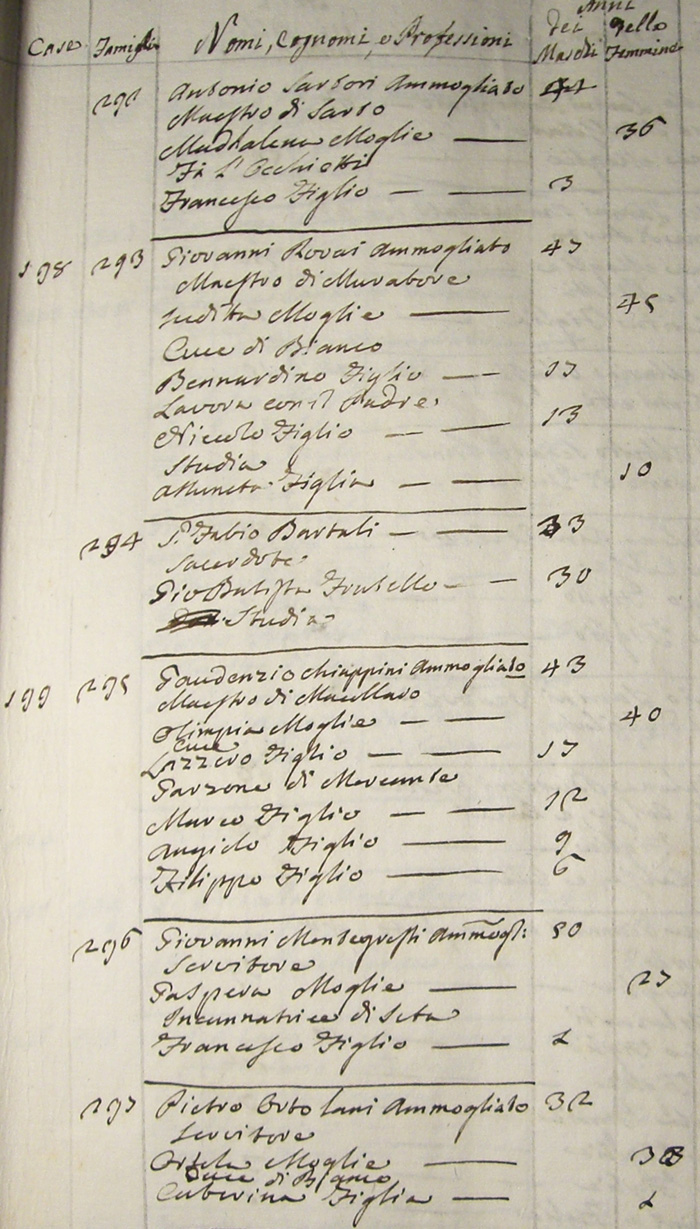 Anni
Case Famiglie Nomi, Cognomi, e Professioni dei Maschi delle Femmine
292 Antonio Sartori Ammogliato
Maestro di Sarto
Maddalena Moglie — 36
Fà l'Occhietti
Francesco Figlio — — 3
198 293 Giovanni Rovai Ammogliato 47
Maestro di Muratore
Iuditta Moglie — 45
Cuce di Bianco
Bennardino Figlio — — 17
Lavora con il Padre
Niccolo Figlio — — 13
Studia
Assunta Figlia — — 10
294 Sr. Fabio Bartali — — 33
Sacerdote
Gio Batista Fratello — — 30
Studia
199 295 Gaudenzio Chiappini Ammogliato 43
Maestro di Macellaro
Olimpia Moglie — — 40
Cuce
Lazzero Figlio — — 17
Garzone di Mercante
Marco Figlio — — 12
Angiolo Figlio — 9
Filippo Figlio — 6
296 Giovanni Ammogl: 50
Servitore
Gaspera Moglie — 27
Incannatrice di Seta
Francesco Figlio — 1
297 Pietro Ortolani Ammogliato 32
Servitore
Orsola Moglie —
Cuce di Bianco
Caterina Figlia — 1